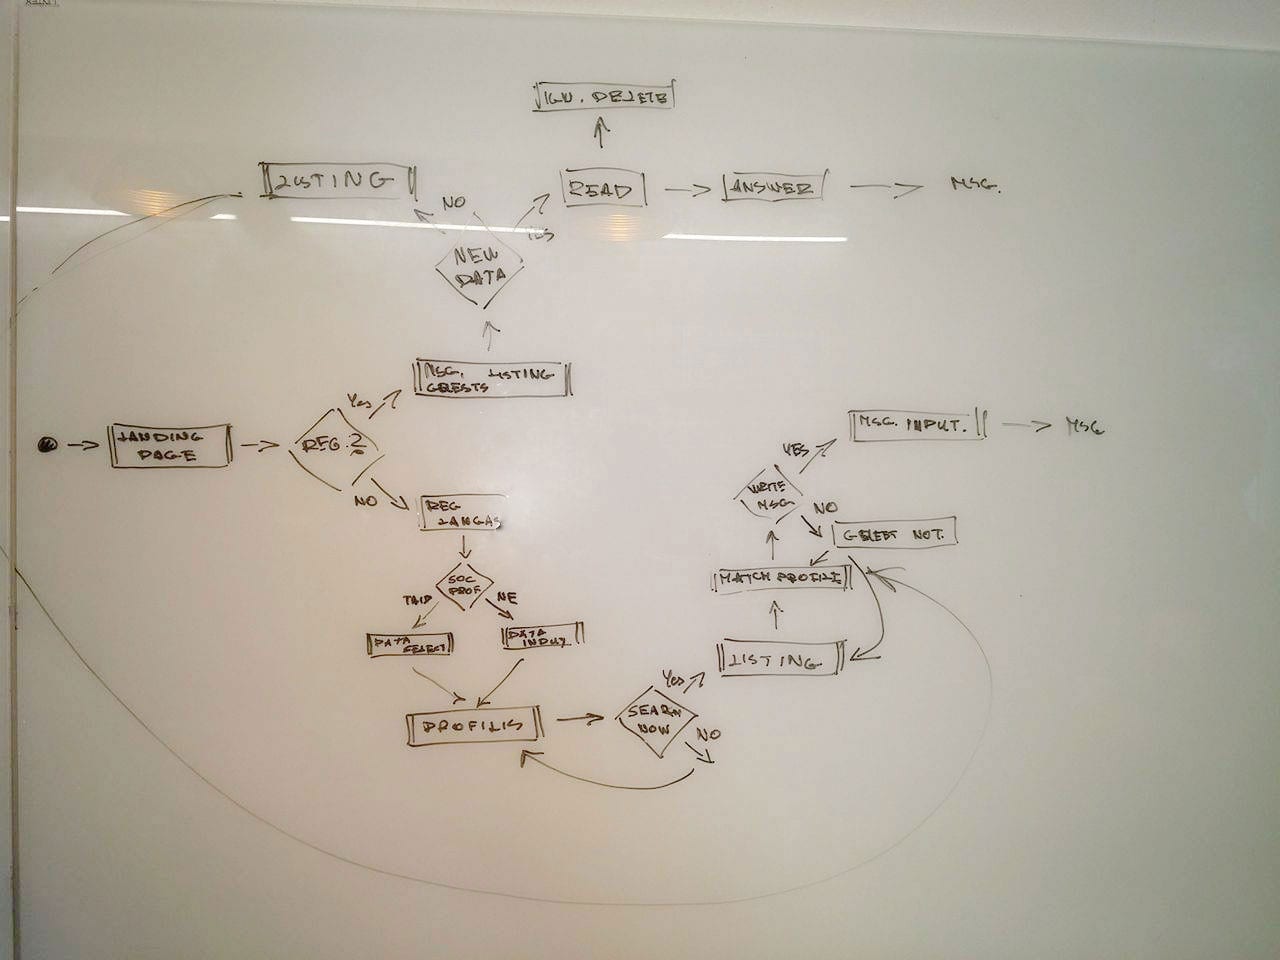 IGN. DELETE
LISTING
NO
YES
READ
ANSWER
MSG.
NEW
DATA
MSG. LISTING
GUESTS
LANDING
PAGE
REG.?
Yes
NO
REG
LANGAS
SOC
PROF
TAIP
NE
DATA
SELECT
DATA
INPUT
PROFILIS
SEARCH
NOW
Yes
NO
LISTING
MATCH PROFILE
WRITE
MSG
YES
NO
MSG. INPUT.
MSG
NOT.